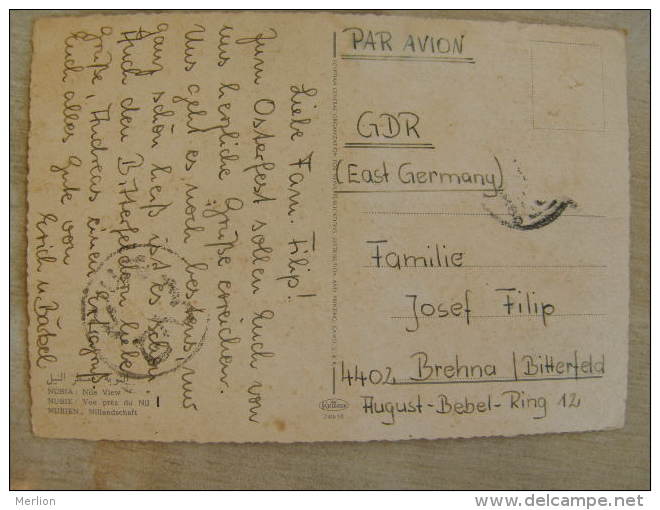 Liebe Fam. Filip!
Zum Osterfest sollen Euch von
uns herzliche Grüße erreichen.
Uns geht es noch bestens, nur
ganz schön heiß ist es schon.
Auch den Bitterfeldern liebe
Grüße, Andreas einen Extragruß
Euch alles Gute von
Erich u. Bärbel
NUBIA: Nile View
NUBIE: Vue près du Nil
NUBIEN, Nillandschaft
PAR AVION
GDR
(East Germany)
Familie
Josef Filip
4402 Brehna / Bitterfeld
August-Bebel-Ring 12
Merlion
www.delcampe.net